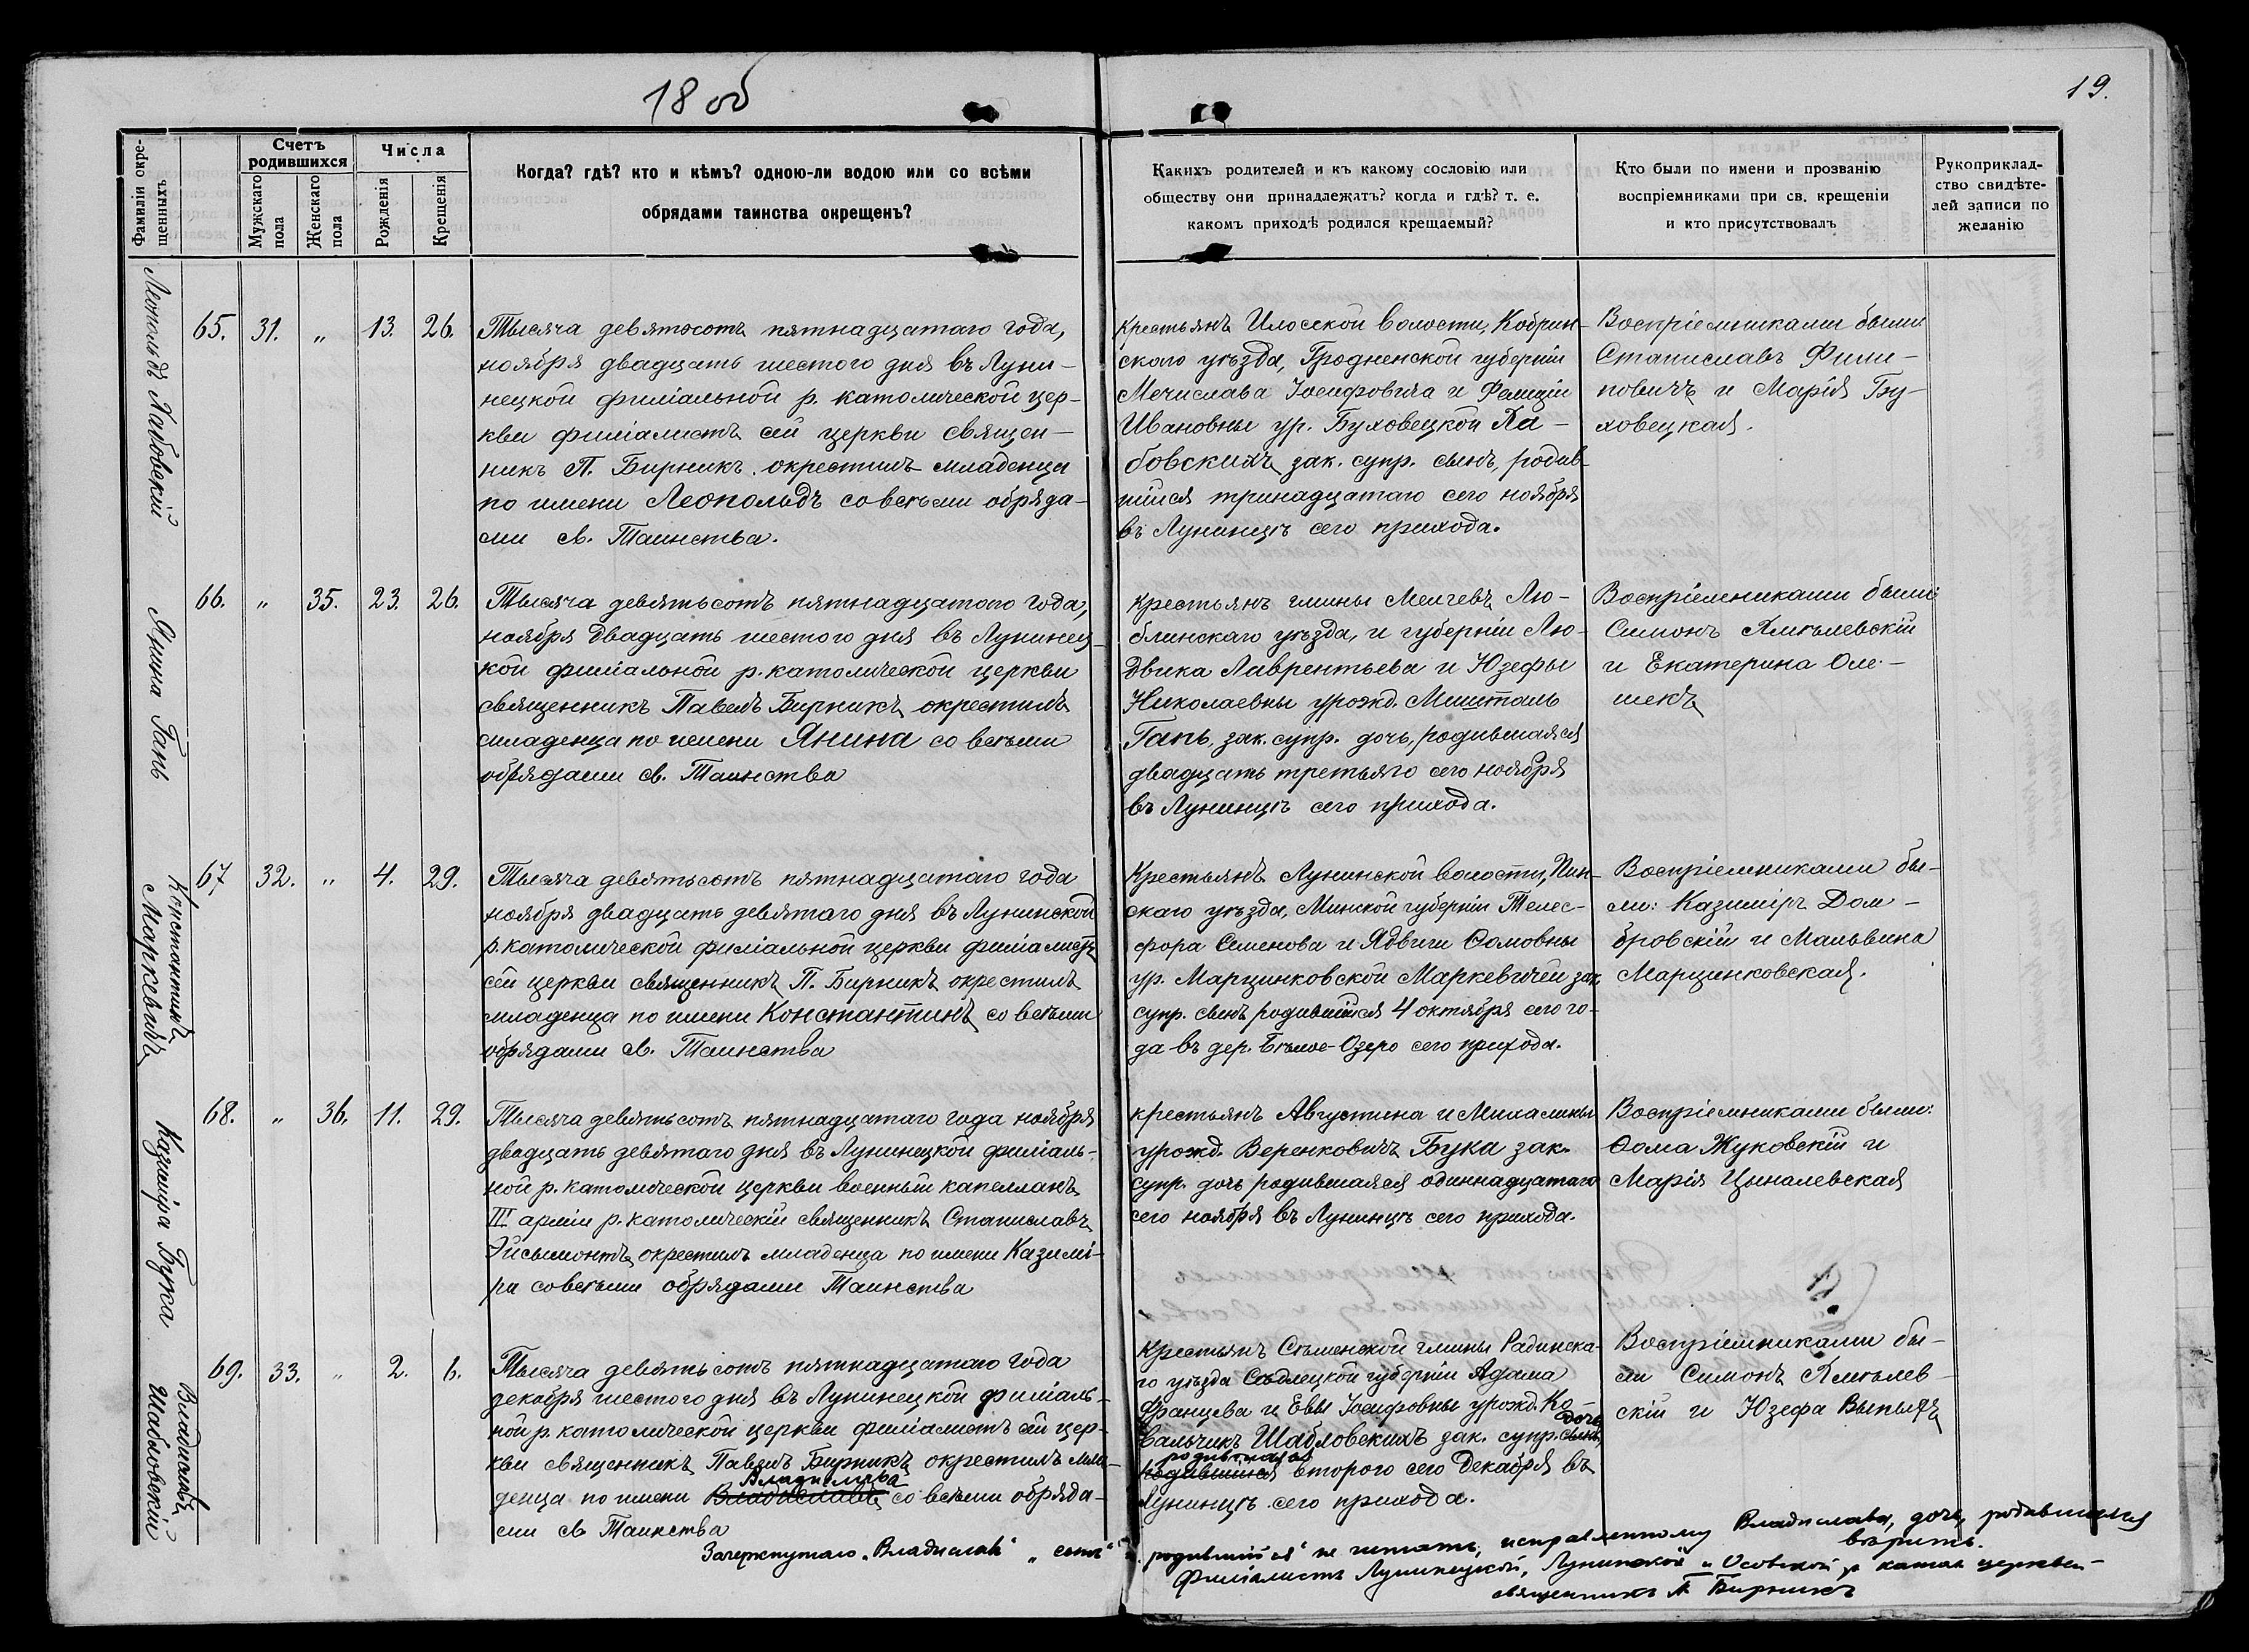 18 об
19.
Фамиліи окре-
щенныхъ
Счетъ
родившихся
Мужскаго
пола
Женскаго
пола
Числа
Рожденія
Крещенія
Когда? гдѣ? кто и кѣмъ? одною-ли водою или со всѣми
обрядами таинства окрещенъ?
Какихъ родителей и къ какому сословію или
обществу они принадлежатъ? когда и гдѣ? т. е.
какомъ приходѣ родился крещаемый?
Кто были по имени и прозванію
воспріемниками при св. крещеніи
и кто присутствовалъ
Рукоприклад-
ство свидѣте-
лей записи по
желанію
Леопольдъ Лабовскій
65. 31. " 13. 26.
Тысяча девятьсотъ пятнадцатаго года,
ноября двадцать шестого дня въ Луни-
нецкой филіальной р. католической цер-
кви филіалистъ сей церкви священ-
никъ П. Бирникъ окрестилъ младенца
по имени Леопольдъ со всѣми обряда-
ми св. Таинства.
Крестьянъ Илосской волости, Кобрин-
скаго уѣзда, Гродненской губерніи
Мечислава Іосифовича и Фелиціи
Ивановны ур. Буховецкой Ла-
бовскихъ зак. супр. сынъ, родив-
шійся тринадцатаго сего ноября
въ Лунинцѣ сего прихода.
Воспріемниками были
Станиславъ Фили-
повичъ и Марія Бу-
ховецкая.
Янина Гань
66. " 35. 23. 26.
Тысяча девятьсотъ пятнадцатого года,
ноября двадцать шестого дня въ Лунинец-
кой филіальной р. католической церкви
священникъ Павелъ Бирникъ окрестилъ
младенца по имени Янина со всѣми
обрядами св. Таинства
Крестьянъ гмины Мелгевъ Лю-
блинскаго уѣзда, и губерніи Лю-
двика Лаврентьева и Юзефы
Николаевны урожд. Мишталь
Гань, зак. супр. дочь, родившаяся
двадцать третьяго сего ноября
въ Лунинцѣ сего прихода.
Воспріемниками были:
Симонъ Хмѣлевскій
и Екатерина Оле-
шекъ
Константинъ
Маркевичъ
67. 32. " 4. 29.
Тысяча девятьсотъ пятнадцатаго года
ноября двадцать девятаго дня въ Лунинской
р. католической филіальной церкви филіалистъ
сей церкви священникъ П. Бирникъ окрестилъ
младенца по имени Константинъ со всѣми
обрядами св. Таинства
Крестьянъ Лунинской волости, Пин-
скаго уѣзда, Минской губерніи Телес-
фора Семенова и Ядвиги Ѳомовны
ур. Марцинковской Маркевичей зак.
супр. сынъ родившійся 4 октября сего го-
да въ дер. Бѣлое-Озеро сего прихода.
Воспріемниками бы-
ли: Казиміръ Дом-
бровскій и Мальвина
Марцинковская.
Казиміра Бука
68. " 36. 11. 29.
Тысяча девятьсотъ пятнадцатаго года ноября
двадцать девятаго дня въ Лунинецкой филіаль-
ной р. католической церкви военный капелланъ
III арміи р. католическій священникъ Станиславъ
Эйсымонтъ окрестилъ младенца по имени Казимі-
ра со всѣми обрядами Таинства
крестьянъ Августина и Михалины
урожд. Веренковичъ Бука зак.
супр. дочь родившаяся одиннадцатаго
сего ноября въ Лунинцѣ сего прихода.
Воспріемниками были:
Ѳома Жуковскій и
Марія Цыналевская
Владиславъ
Шабловскій
69. 33. " 2. 6.
Тысяча девятьсотъ пятнадцатаго года
декабря шестого дня въ Лунинецкой филіаль-
ной р. католической церкви филіалистъ сей цер-
кви священникъ Павелъ Бирникъ окрестилъ мла-
Владислава
денца по имени Владиславъ со всѣми обряда-
ми св. Таинства
Крестьянъ Сѣменской гмины Радинска-
го уѣзда Сѣдлецкой губерніи Адама
Францева и Евы Іосифовны урожд. Ко-
дочь
вальчикъ Шабловскихъ зак. супр. сынъ,
родившаяся
родившійся второго сего декабря въ
Лунинцѣ сего прихода.
Воспріемниками бы-
ли Симонъ Хмѣлев-
скій и Юзефа Выпыхъ
Зачеркнутаго „Владиславъ" „сынъ" „родившійся" не читать, исправленному Владислава, дочь, родившаяся
вѣрить.
Филіалистъ Лунинецкой, Лунинской и Осовской р. катол церквей
священникъ П Бирникъ